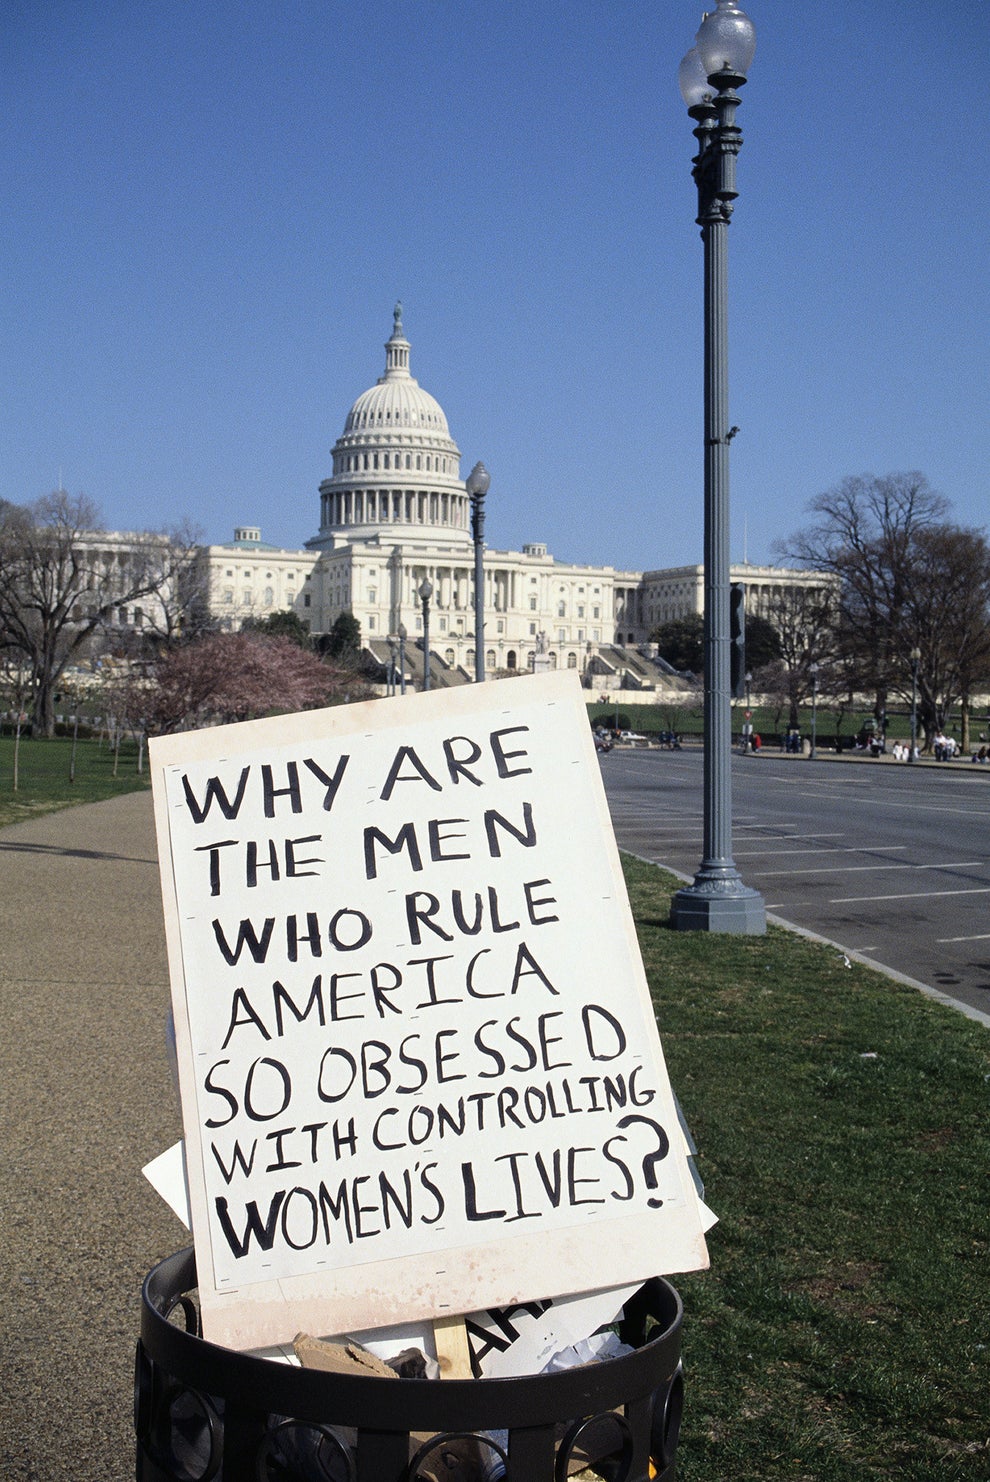 WHY ARE
THE MEN
WHO RULE
AMERICA
SO OBSESSED
WITH CONTROLLING
WOMEN'S LIVES?